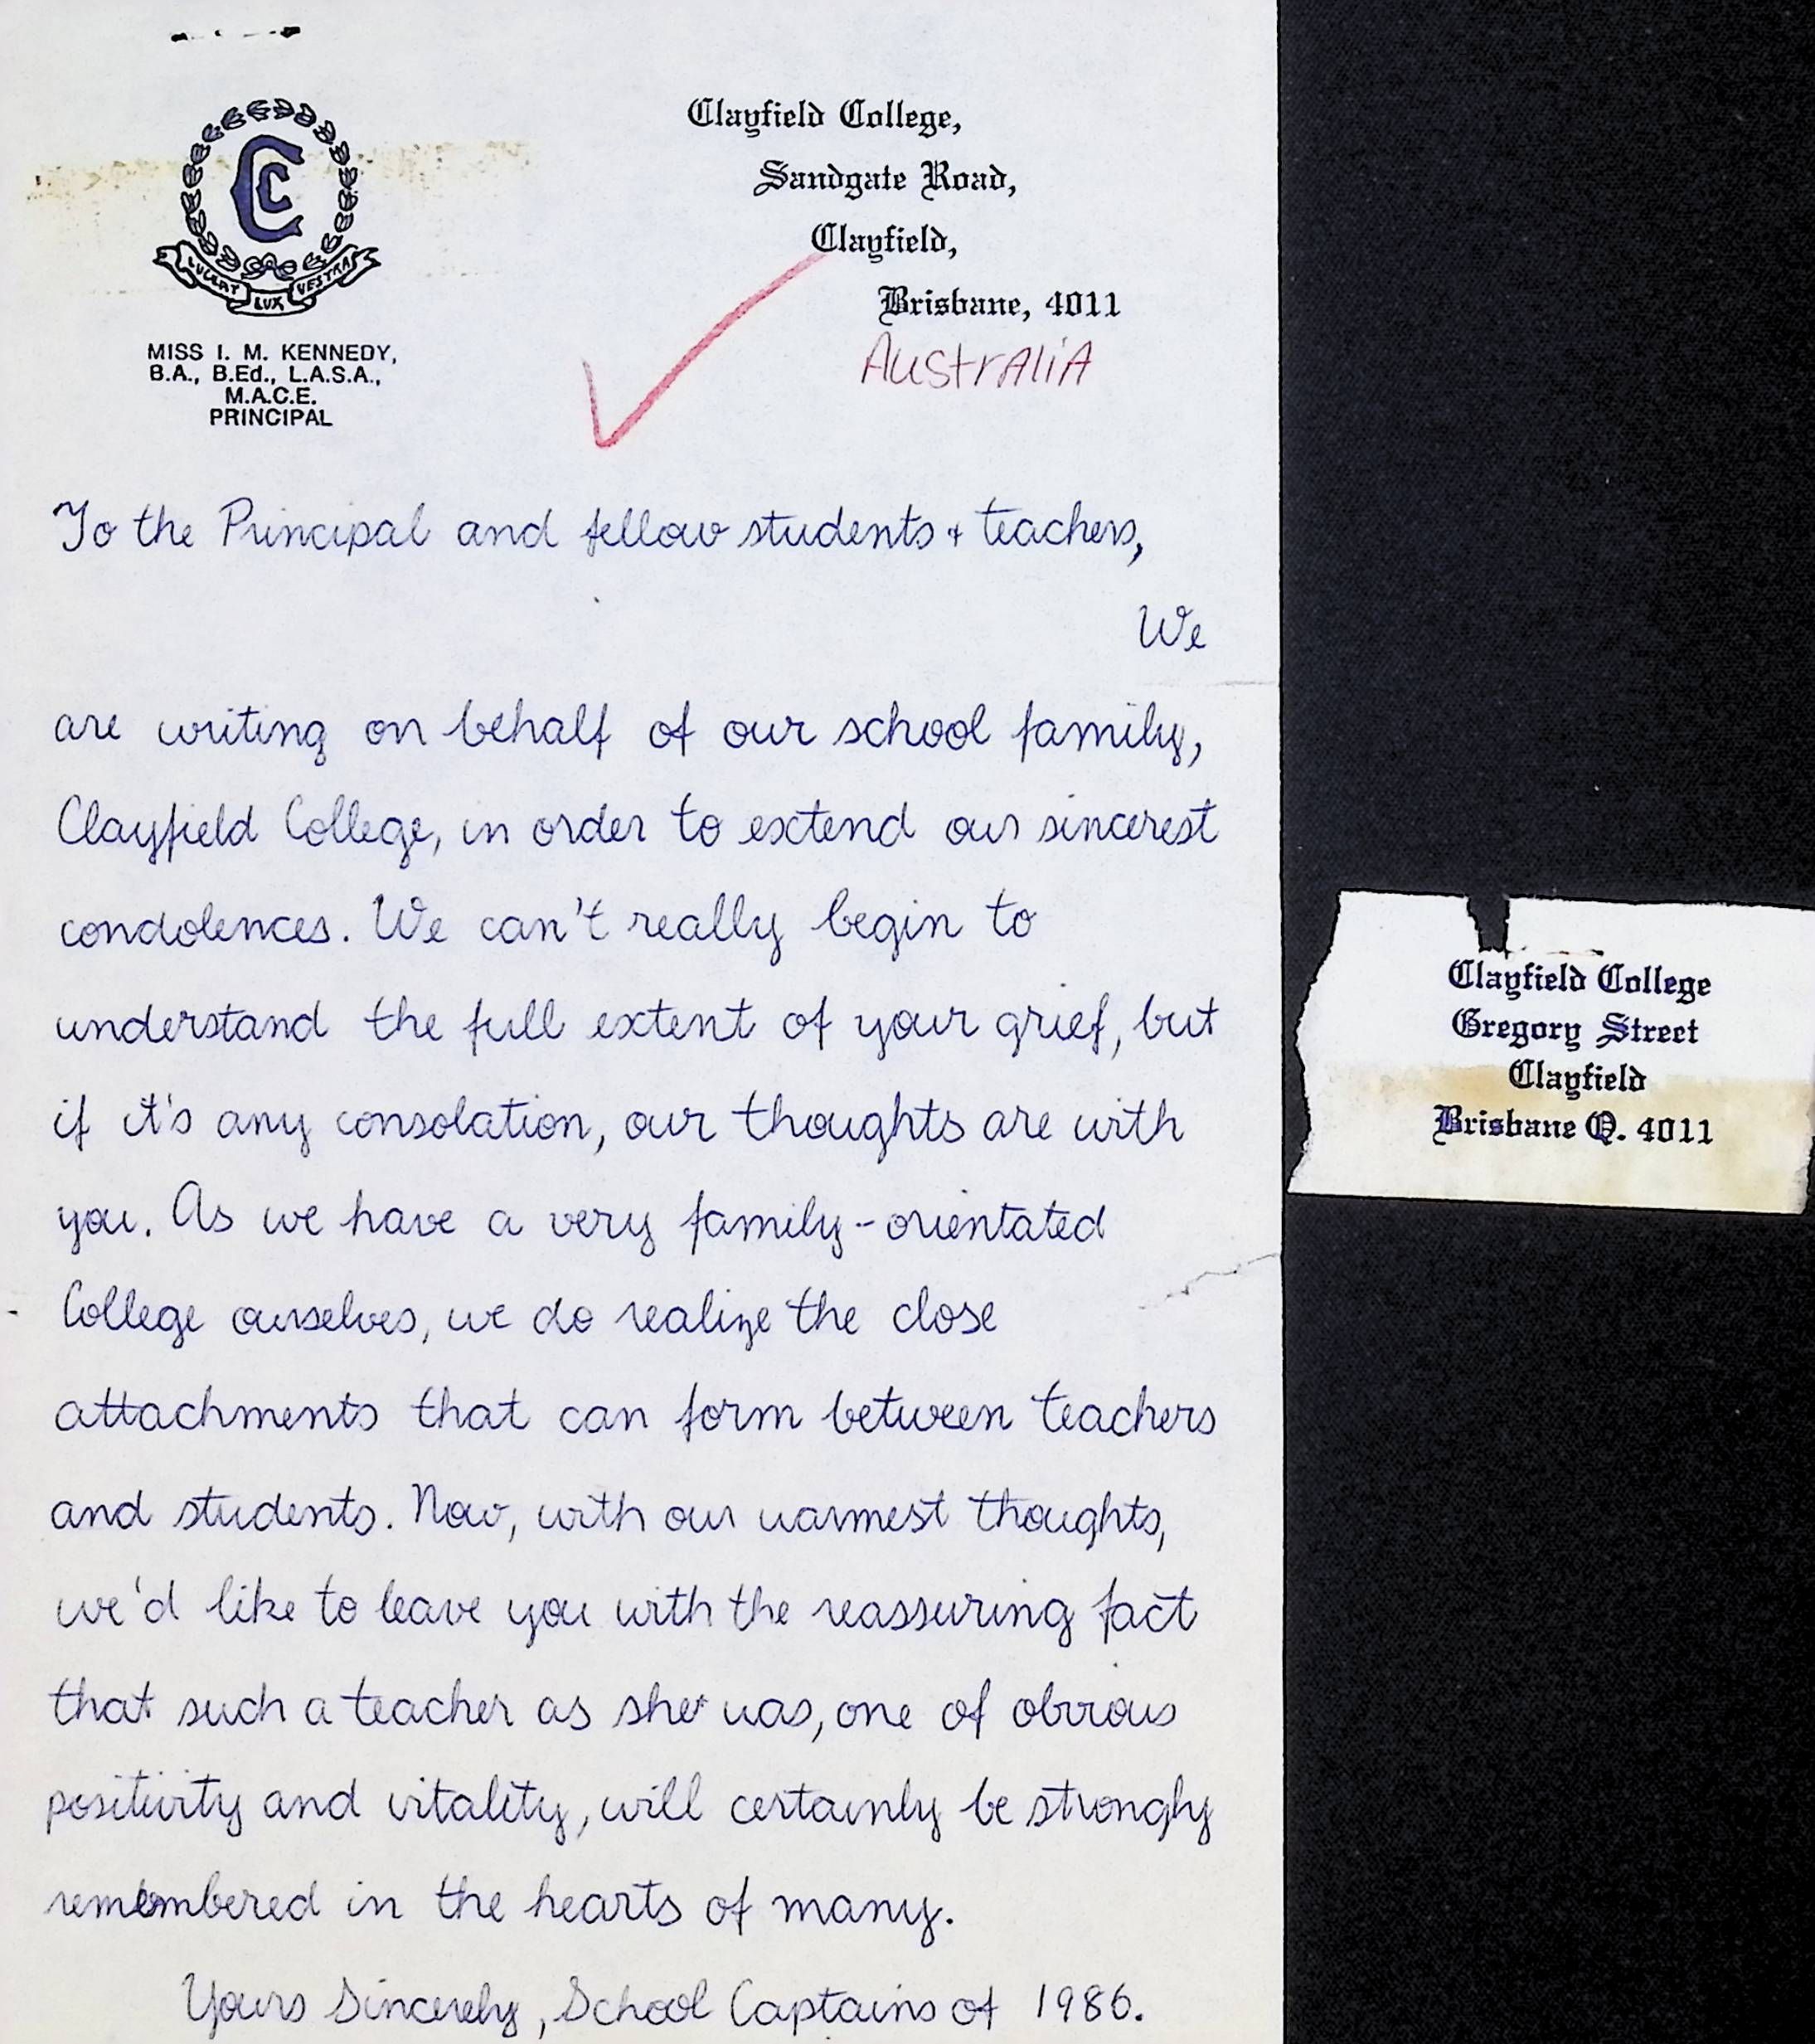 LUCEAT LUX VESTRA
MISS I. M. KENNEDY,
B.A., B.Ed., L.A.S.A.,
M.A.C.E.
PRINCIPAL
Clayfield College,
Sandgate Road,
Clayfield,
Brisbane, 4011
AustrAliA
To the Principal and fellow students + teachers,
We
are writing on behalf of our school family,
Clayfield College, in order to extend our sincerest
condolences. We can't really begin to
understand the full extent of your grief, but
if it's any consolation, our thoughts are with
you. As we have a very family-orientated
College ourselves, we do realize the close
attachments that can form between teachers
and students. Now, with our warmest thoughts,
we'd like to leave you with the reassuring fact
that such a teacher as she was, one of obvious
positivity and vitality, will certainly be strongly
remembered in the hearts of many.
Yours Sincerely, School Captains of 1986.
Clayfield College
Gregory Street
Clayfield
Brisbane Q. 4011